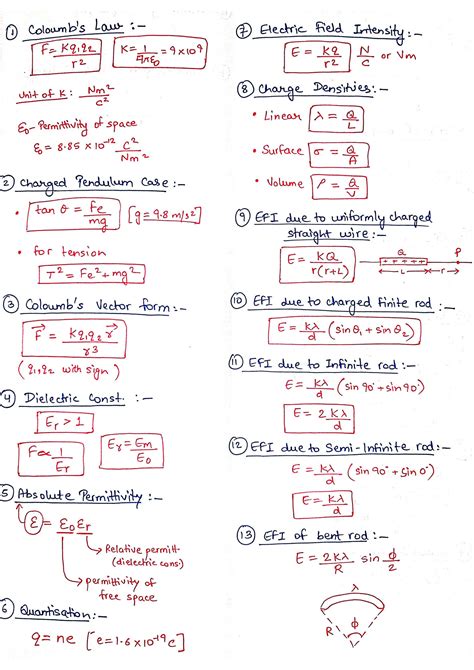 ① Coloumb's Law :-
F = Kq₁q₂ / r²
K = 1 / 4πε₀ = 9×10⁹
unit of K : Nm² / C²
ε₀ - Permittivity of space
ε₀ = 8.85 × 10⁻¹² C² / Nm²
② Charged Pendulum Case :-
• tan θ = Fe / mg [g = 9.8 m/s²]
• for tension
T² = Fe² + mg²
③ Coloumb's Vector form :-
F⃗ = Kq₁q₂ r⃗ / r³
(q₁,q₂ with sign)
④ Dielectric Const. :-
Er > 1
F ∝ 1 / Er
Er = Em / E₀
⑤ Absolute Permittivity :-
ε = ε₀εr
Relative permitt-
(dielectric cons)
permittivity of
free space
⑥ Quantisation :-
q = ne [e = 1.6 × 10⁻¹⁹ C]
⑦ Electric Field Intensity :-
E = kq / r² N / C or Vm
⑧ Charge Densities :-
• Linear λ = Q / L
• Surface σ = Q / A
• Volume ρ = Q / V
⑨ EFI due to uniformly charged
straight wire :-
E = KQ / r(r+L)
Q
P
+ + + + +
L r
⑩ EFI due to charged finite rod :-
E = Kλ / d (sin θ₁ + sin θ₂)
⑪ EFI due to Infinite rod :-
E = Kλ / d (sin 90° + sin 90)
E = 2Kλ / d
⑫ EFI due to Semi-Infinite rod :-
E = Kλ / d (sin 90° + sin 0°)
E = Kλ / d
⑬ EFI of bent rod :-
E = 2Kλ / R sin ϕ / 2
λ
R ϕ